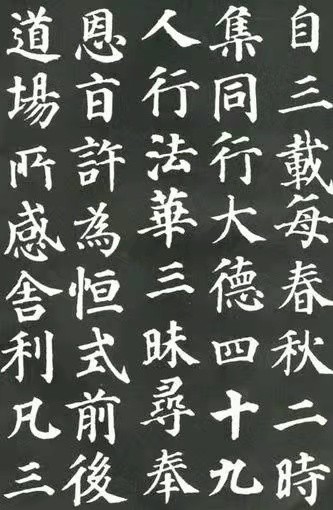 自三載每春秋二時
集同行大德四十九
人行法華三昧尋奉
恩旨許為恒式前後
道場所感舍利凡三